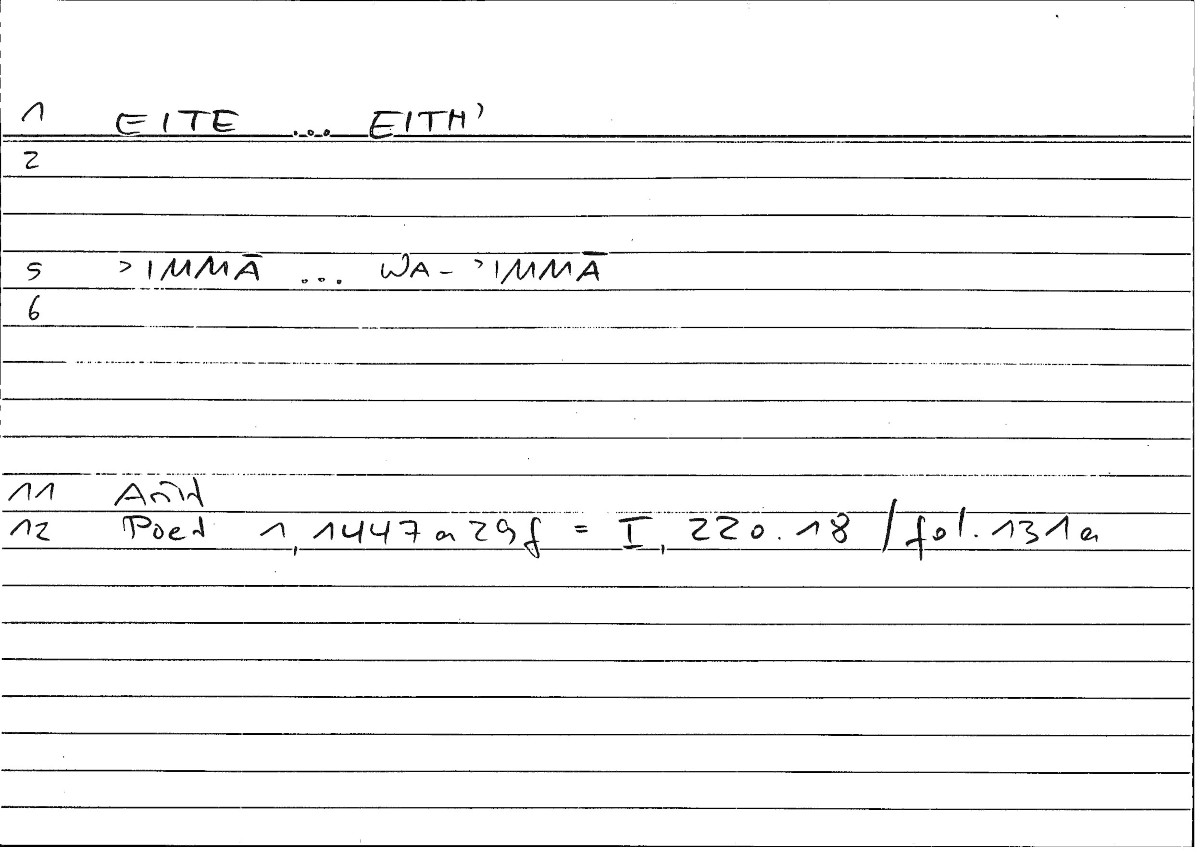 1 EITE ... EITH'
2
5 ʾIMMĀ ... WA-ʾIMMĀ
6
11 Arist
12 Poet 1,1447a29f = I, 220.18 / fol. 131a